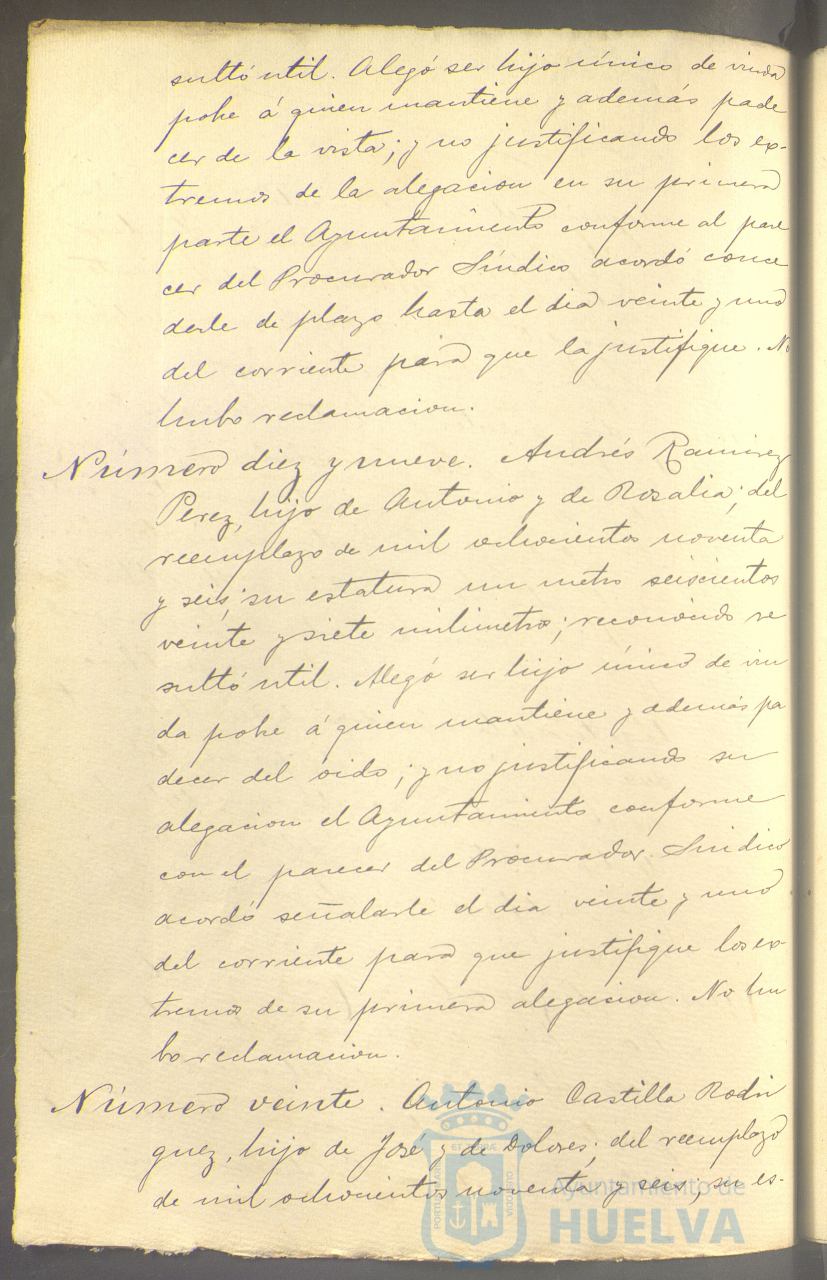 sultó util. Alegó ser hijo único de viuda
pobre á quien mantiene y además pade
cer de la vista; y no justificando los ex-
tremos de la alegacion en su primera
parte el Ayuntamiento conforme al pare
cer del Procurador Síndico acordó conce
derle de plazo hasta el dia veinte y uno
del corriente para que la justifique. No
hubo reclamacion.
Número diez y nueve. Andrés Ramirez
Perez, hijo de Antonio y de Rosalia; del
reemplazo de mil ochocientos noventa
y seis; su estatura un metro seiscientos
veinte y siete milimetros; reconocido re
sultó util. Alegó ser hijo único de viu
da pobre á quien mantiene y además pa
decer del oido; y no justificando su
alegacion el Ayuntamiento conforme
con el parecer del Procurador Sindico
acordó señalarle el dia veinte y uno
del corriente para que justifique los ex-
tremos de su primera alegacion. No hu
bo reclamacion.
Número veinte. Antonio Castilla Rodri
guez, hijo de José y de Dolores; del reemplazo
de mil ochocientos noventa y seis, su es-
Ayuntamiento de
HUELVA